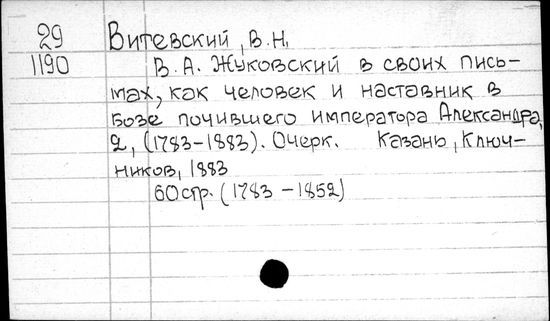 29 Витевский, В.Н.
1190 В.А. Жуковский в своих пись-
мах, как человек и наставник в
бозе почившего императора Александра,
2, (1783-1883). Очерк. Казань, Ключ-
ников, 1883
60стр. (1783-1852)